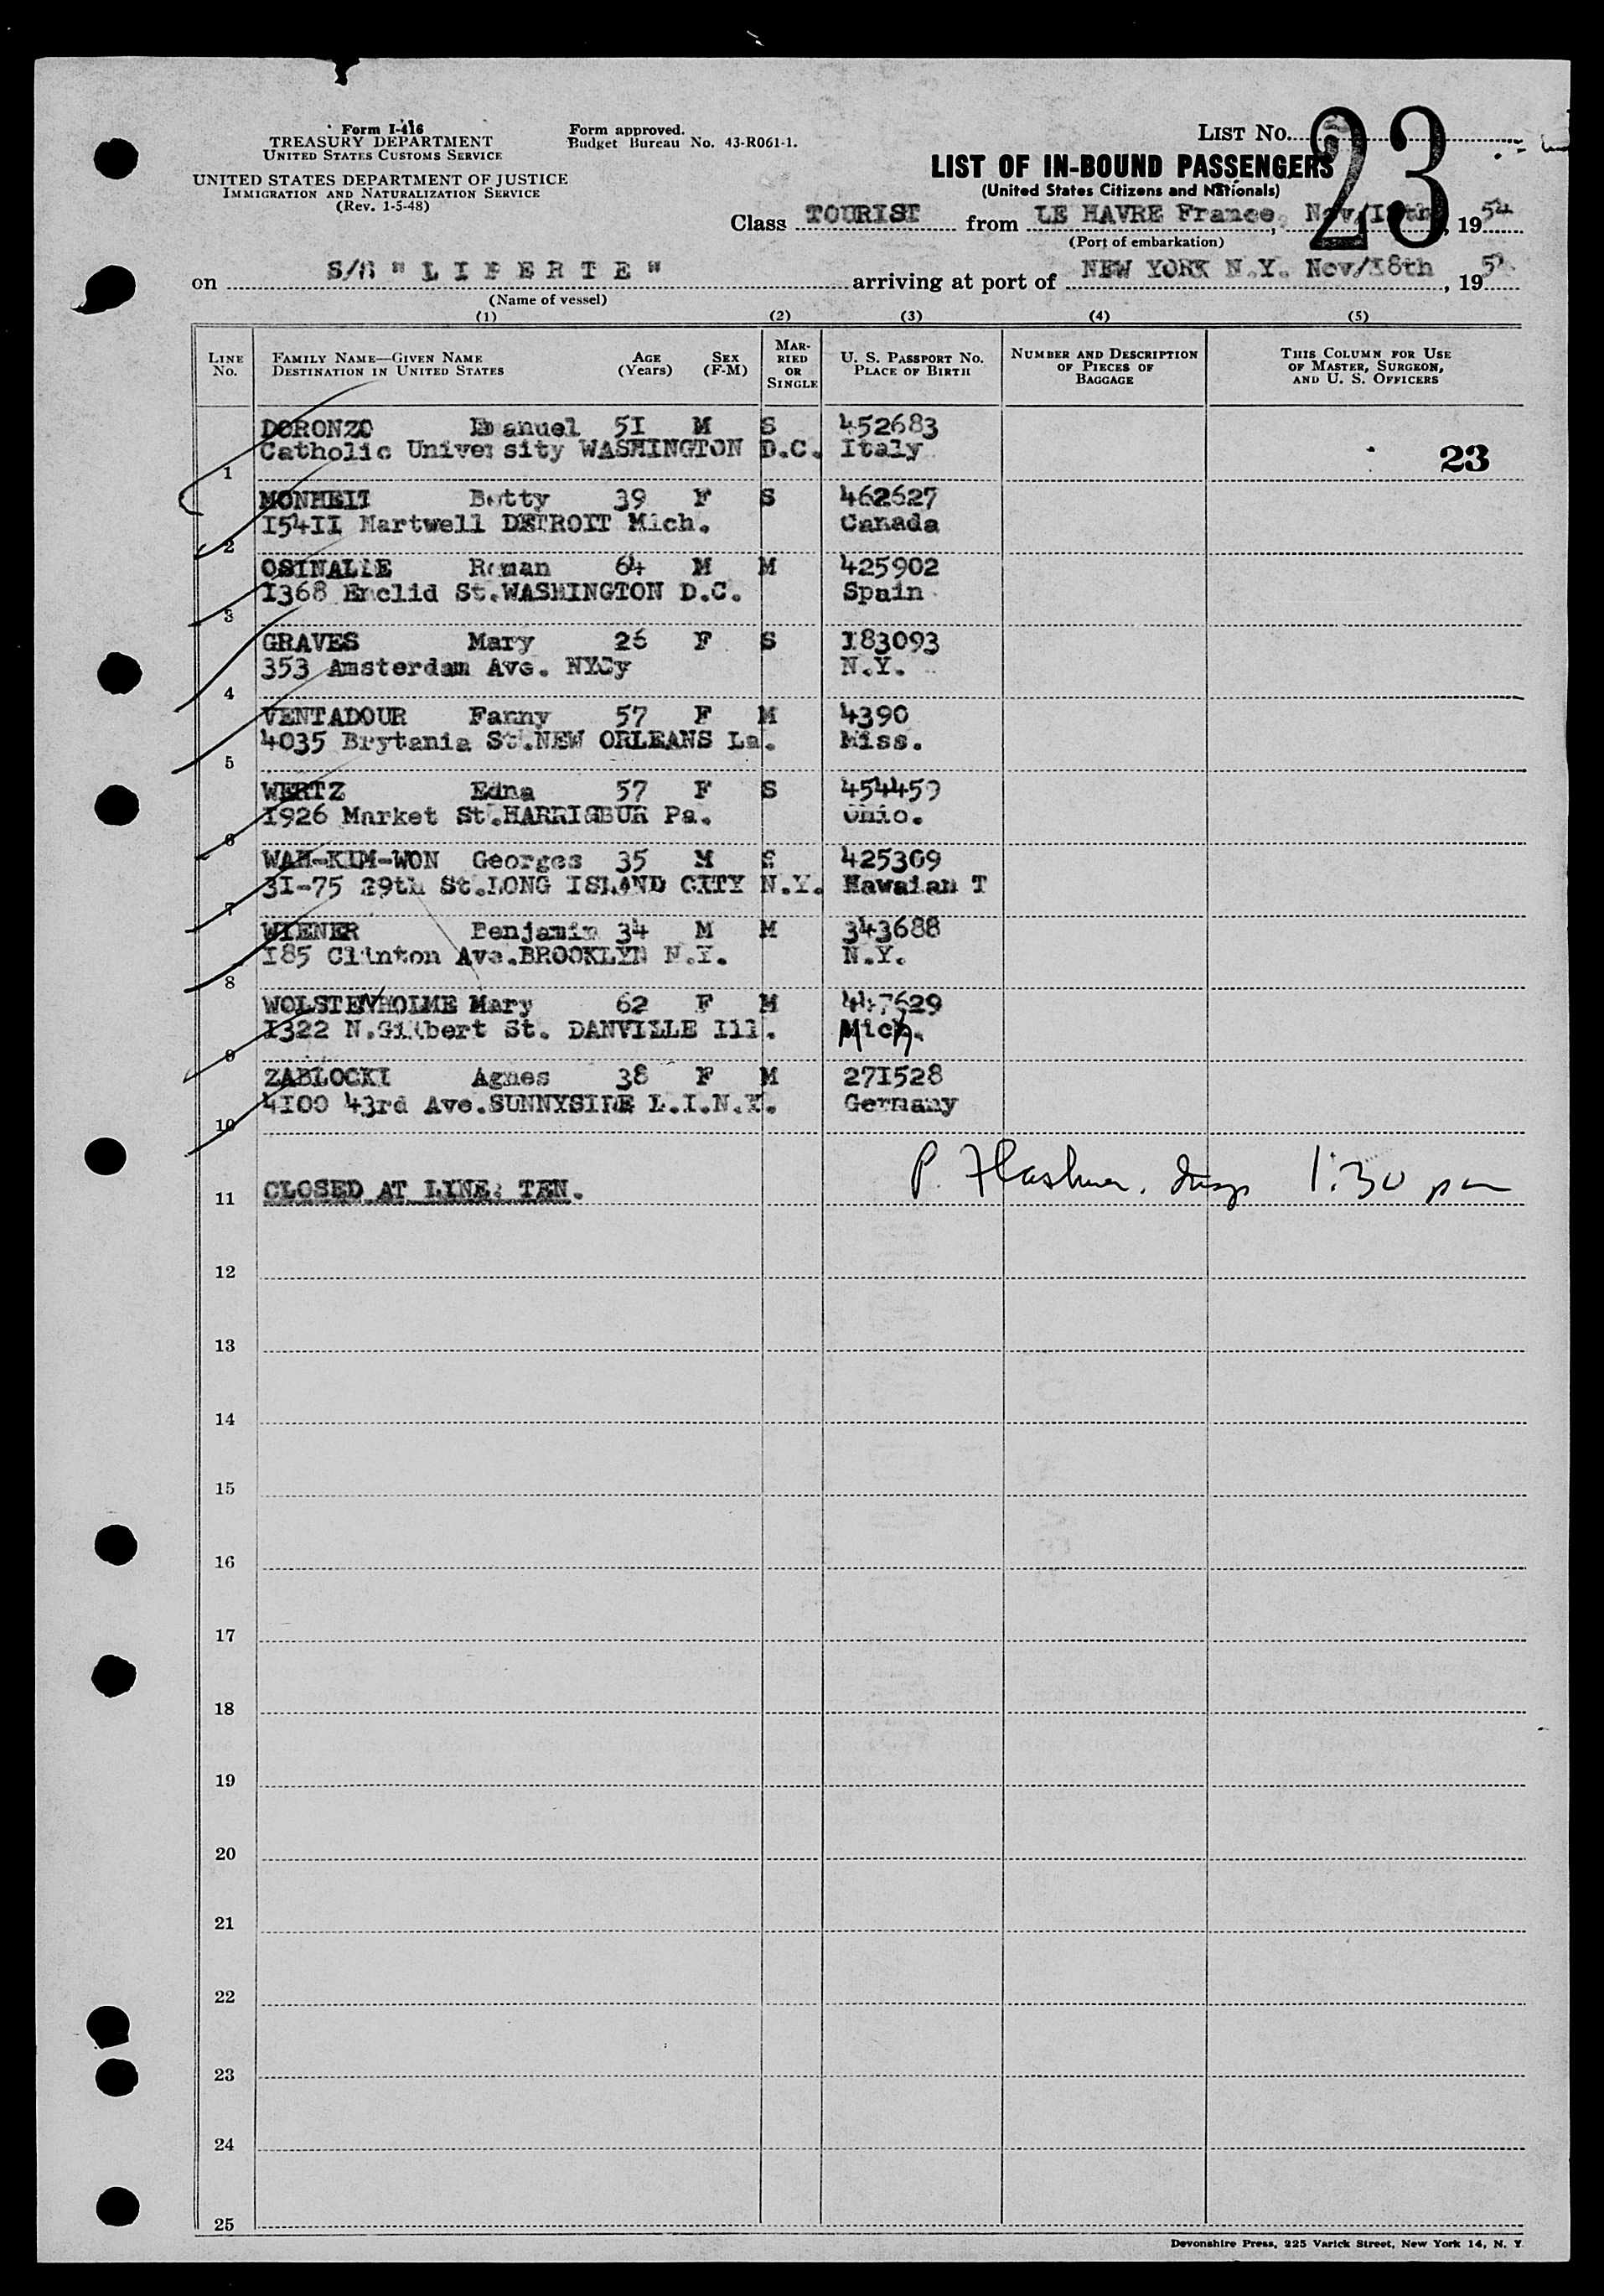 Form I-416
TREASURY DEPARTMENT
UNITED STATES CUSTOMS SERVICE
UNITED STATES DEPARTMENT OF JUSTICE
IMMIGRATION AND NATURALIZATION SERVICE
(Rev. 1-5-48)
Form approved.
Budget Bureau No. 43-R061-1.
LIST No. 23
LIST OF IN-BOUND PASSENGERS
(United States Citizens and Nationals)
Class TOURIST from LE HAVRE France, Nov/ , 1954
(Port of embarkation)
on S/S "LIBERTE" arriving at port of NEW YORK N.Y. Nov/18th, 195
(Name of vessel)
(1) (2) (3) (4) (5)
LINE No. FAMILY NAME—GIVEN NAME DESTINATION IN UNITED STATES AGE (Years) SEX (F-M) MARRIED OR SINGLE U. S. PASSPORT No. PLACE OF BIRTH NUMBER AND DESCRIPTION OF PIECES OF BAGGAGE THIS COLUMN FOR USE OF MASTER, SURGEON, AND U. S. OFFICERS
DORONZO Emanuel 51 M S 452683
1 Catholic University WASHINGTON D.C. Italy 23
MONHEIT Betty 39 F S 462627
2 15411 Hartwell DETROIT Mich. Canada
OSINALDE Roman 64 M M 425902
3 1368 Enclid St.WASHINGTON D.C. Spain
GRAVES Mary 26 F S 183093
4 353 Amsterdam Ave. NYCy N.Y.
VENTADOUR Fanny 57 F M 4390
5 4035 Brytania St.NEW ORLEANS La. Miss.
WERTZ Edna 57 F S 454459
6 1926 Market St.HARRISBUR Pa. Ohio.
WAH-KIM-WON Georges 35 M S 425309
7 31-75 29th St.LONG ISLAND CITY N.Y. Hawaian T
WIENER Benjamin 34 M M 343688
8 185 Clinton Ave.BROOKLYN N.Y. N.Y.
WOLSTENHOLME Mary 62 F M 447629
9 1322 N.Gilbert St. DANVILLE Ill. Mich.
ZABLOCKI Agnes 38 F M 271528
10 4100 43rd Ave.SUNNYSIDE L.I.N.Y. Germany
11 CLOSED AT LINE: TEN. P. 1:30 pm
12
13
14
15
16
17
18
19
20
21
22
23
24
25
Devonshire Press, 225 Varick Street, New York 14, N. Y.